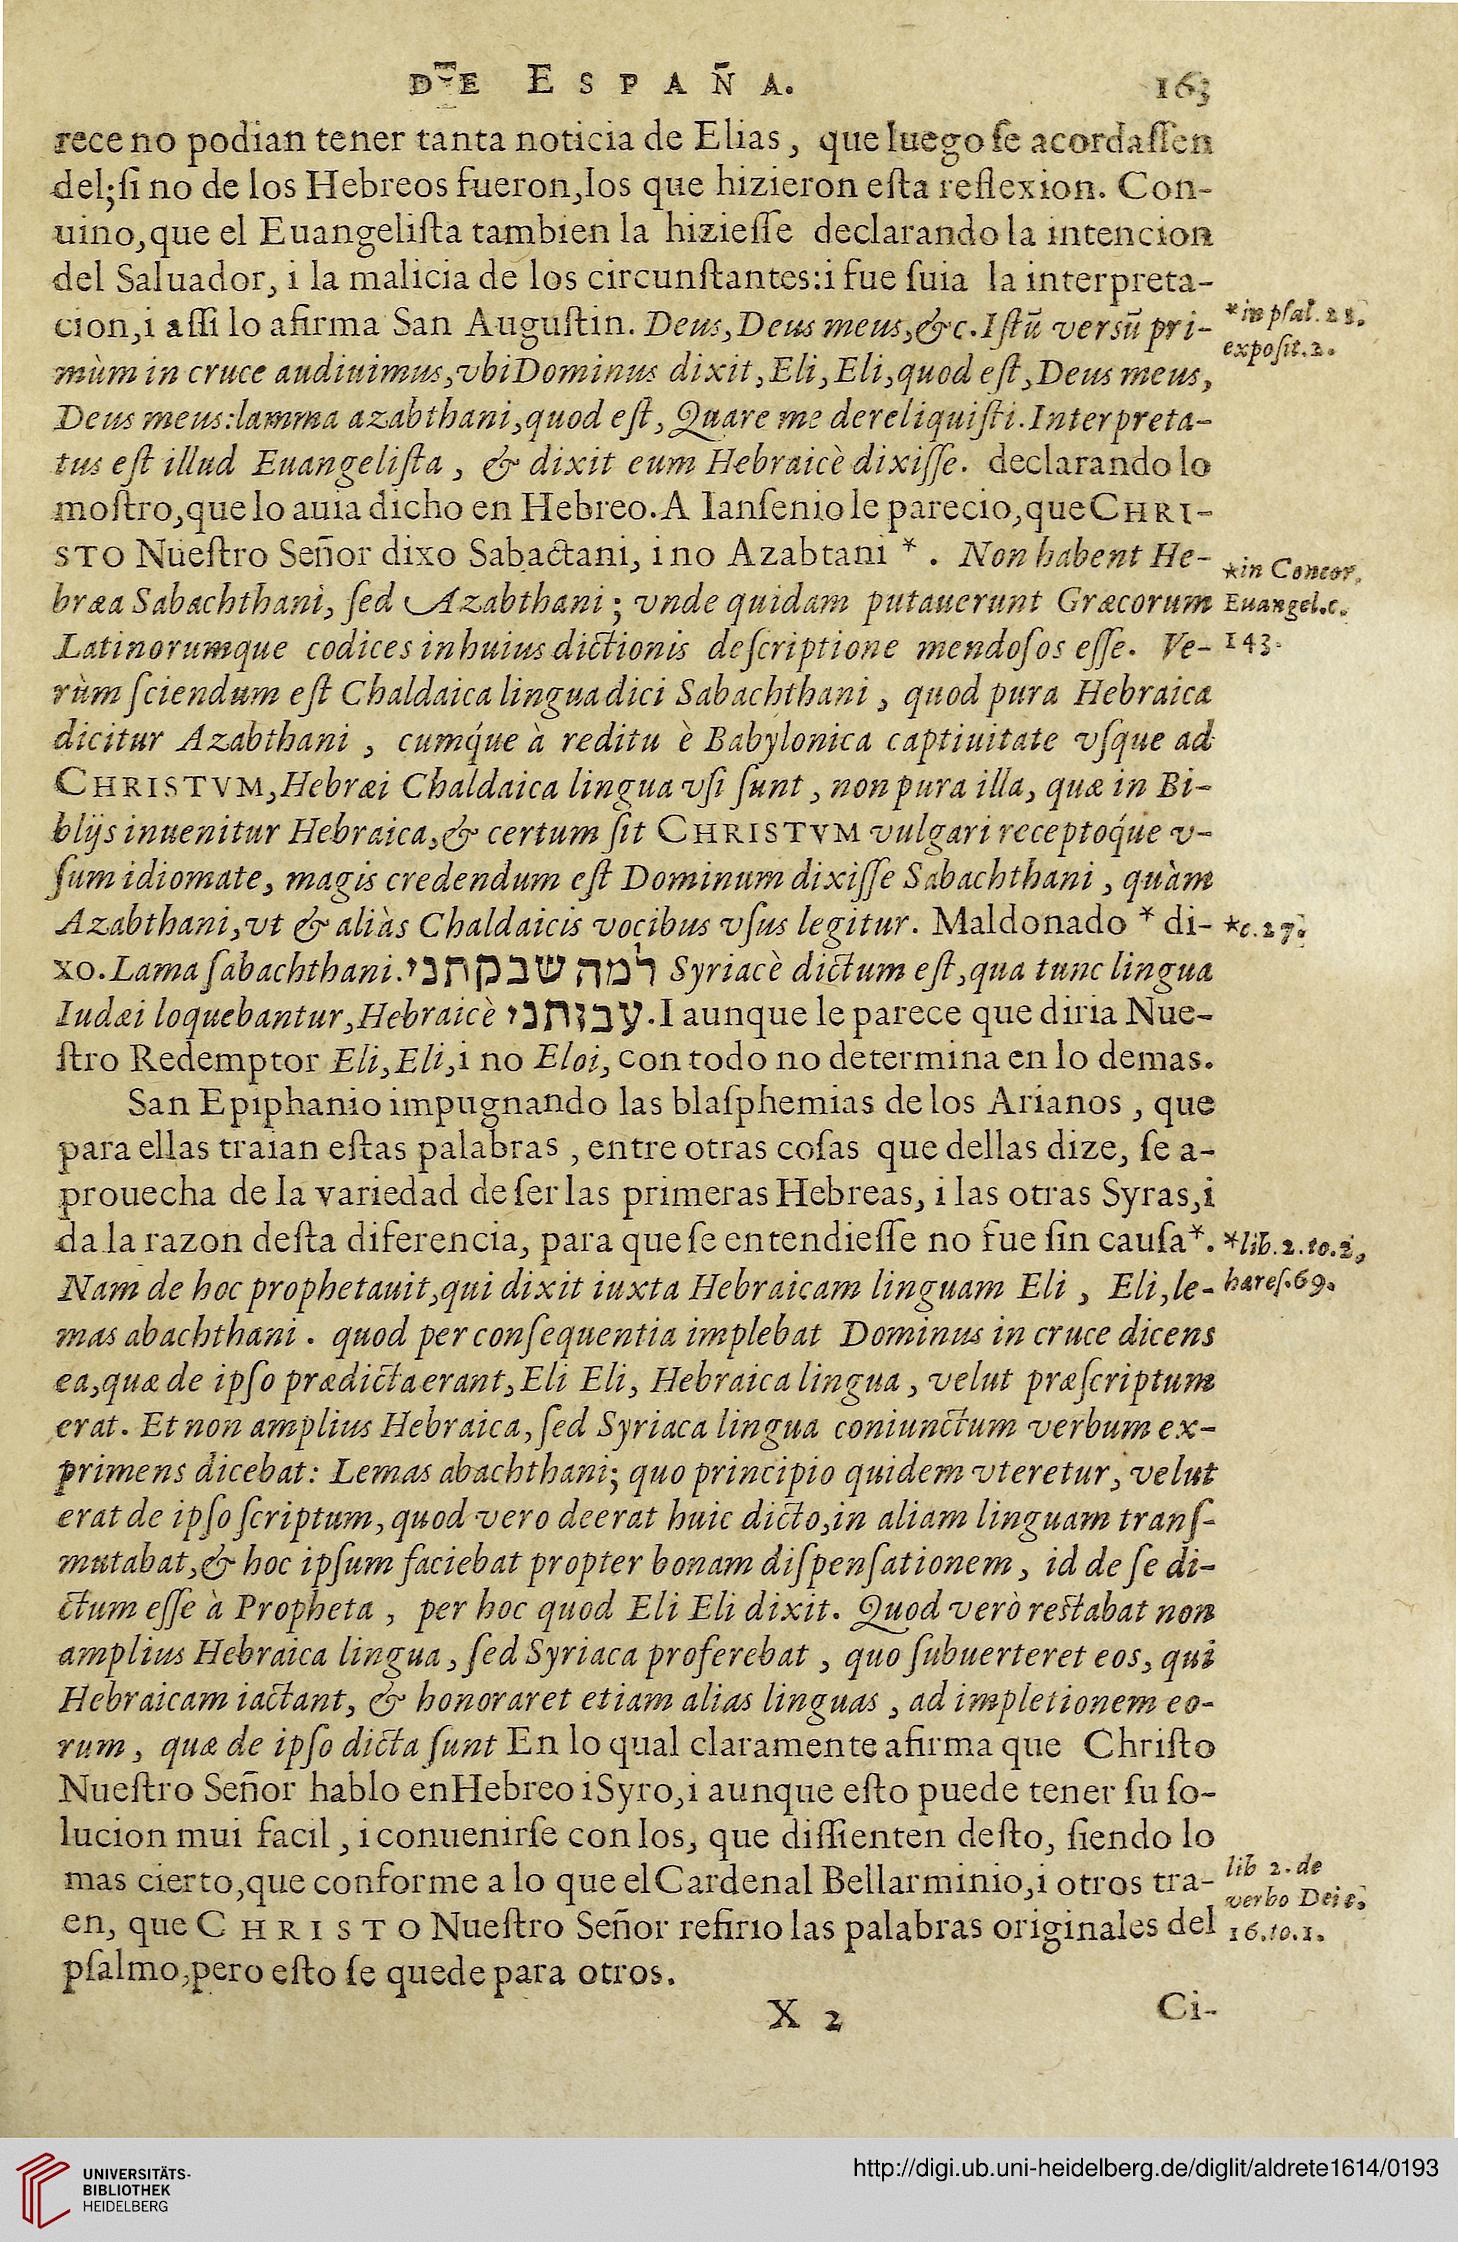 DE ESPAÑA. 163
rece no podian tener tanta noticia de Elias, que luego ſe acordaſſen
del; ſi no de los Hebreos fueron, los que hizieron eſta reflexion. Con-
uino, que el Euangeliſta tambien la hizieſſe declarando la intencion
del Saluador, i la malicia de los circunſtantes: i fue ſuia la interpreta-
cion, i aſſi lo afirma San Auguſtin. Deus, Deus meus, &c. Iſtũ versũ pri-
*in pſal. 21.
expoſit. 2.
mùm in cruce audiuimus, vbi Dominus dixit, Eli, Eli, quod eſt, Deus meus,
Deus meus: lamma azabthani, quod eſt, Quare me dereliquiſti. Interpreta-
tus eſt illud Euangeliſta, & dixit eum Hebraicè dixiſſe. declarando lo
moſtro, que lo auia dicho en Hebreo. A Ianſenio le parecio, que CHRI-
STO Nueſtro Señor dixo Sabactani, i no Azabtani *. Non habent He-
*in Concor.
bræa Sabachthani, ſed Azabthani; vnde quidam putauerunt Græcorum
Euangel. c.
Latinorumque codices in huius dictionis deſcriptione mendoſos eſſe. Ve-
143.
rùm ſciendum eſt Chaldaica lingua dici Sabachthani, quod pura Hebraica
dicitur Azabthani, cumq́ue à reditu è Babylonica captiuitate vſque ad
CHRISTVM, Hebræi Chaldaica lingua vſi ſunt, non pura illa, quæ in Bi-
blijs inuenitur Hebraica, & certum ſit CHRISTVM vulgari receptoq́ue v-
ſum idiomate, magis credendum eſt Dominum dixiſſe Sabachthani, quàm
Azabthani, vt & aliàs Chaldaicis vocibus vſus legitur. Maldonado * di-
*c. 27.
xo. Lama ſabachthani. למה שבקתני Syriacè dictum eſt, qua tunc lingua
Iudæi loquebantur, Hebraicè עבזתני. I aunque le parece que diria Nue-
ſtro Redemptor Eli, Eli, i no Eloi, con todo no determina en lo demas.
San Epiphanio impugnando las blaſphemias de los Arianos, que
para ellas traian eſtas palabras, entre otras coſas que dellas dize, ſe a-
prouecha de la variedad de ſer las primeras Hebreas, i las otras Syras, i
da la razon deſta diferencia, para que ſe entendieſſe no fue ſin cauſa*.
*lib. 2. to. 2,
Nam de hoc prophetauit, qui dixit iuxta Hebraicam linguam Eli, Eli, le-
hæreſ. 69.
mas abachthani. quod per conſequentia implebat Dominus in cruce dicens
ea, quæ de ipſo prædicta erant, Eli Eli, Hebraica lingua, velut præſcriptum
erat. Et non amplius Hebraica, ſed Syriaca lingua coniunctum verbum ex-
primens dicebat: Lemas abachthani; quo principio quidem vteretur, velut
erat de ipſo ſcriptum, quod vero deerat huic dicto, in aliam linguam tranſ-
mutabat, & hoc ipſum faciebat propter bonam diſpenſationem, id de ſe di-
ctum eſſe à Propheta, per hoc quod Eli Eli dixit. Quod verò reſtabat non
amplius Hebraica lingua, ſed Syriaca proferebat, quo ſubuerteret eos, qui
Hebraicam iactant, & honoraret etiam alias linguas, ad impletionem eo-
rum, quæ de ipſo dicta ſunt En lo qual claramente afirma que Chriſto
Nueſtro Señor hablo en Hebreo i Syro, i aunque eſto puede tener ſu ſo-
lucion mui facil, i conuenirſe con los, que diſſienten deſto, ſiendo lo
mas cierto, que conforme a lo que el Cardenal Bellarminio, i otros tra-
lib 2. de
verbo Dei c.
en, que CHRISTO Nueſtro Señor refirio las palabras originales del
16. to. 1.
pſalmo, pero eſto ſe quede para otros.
X 2 Ci-
UNIVERSITÄTS-
BIBLIOTHEK
HEIDELBERG
http://digi.ub.uni-heidelberg.de/diglit/aldrete1614/0193